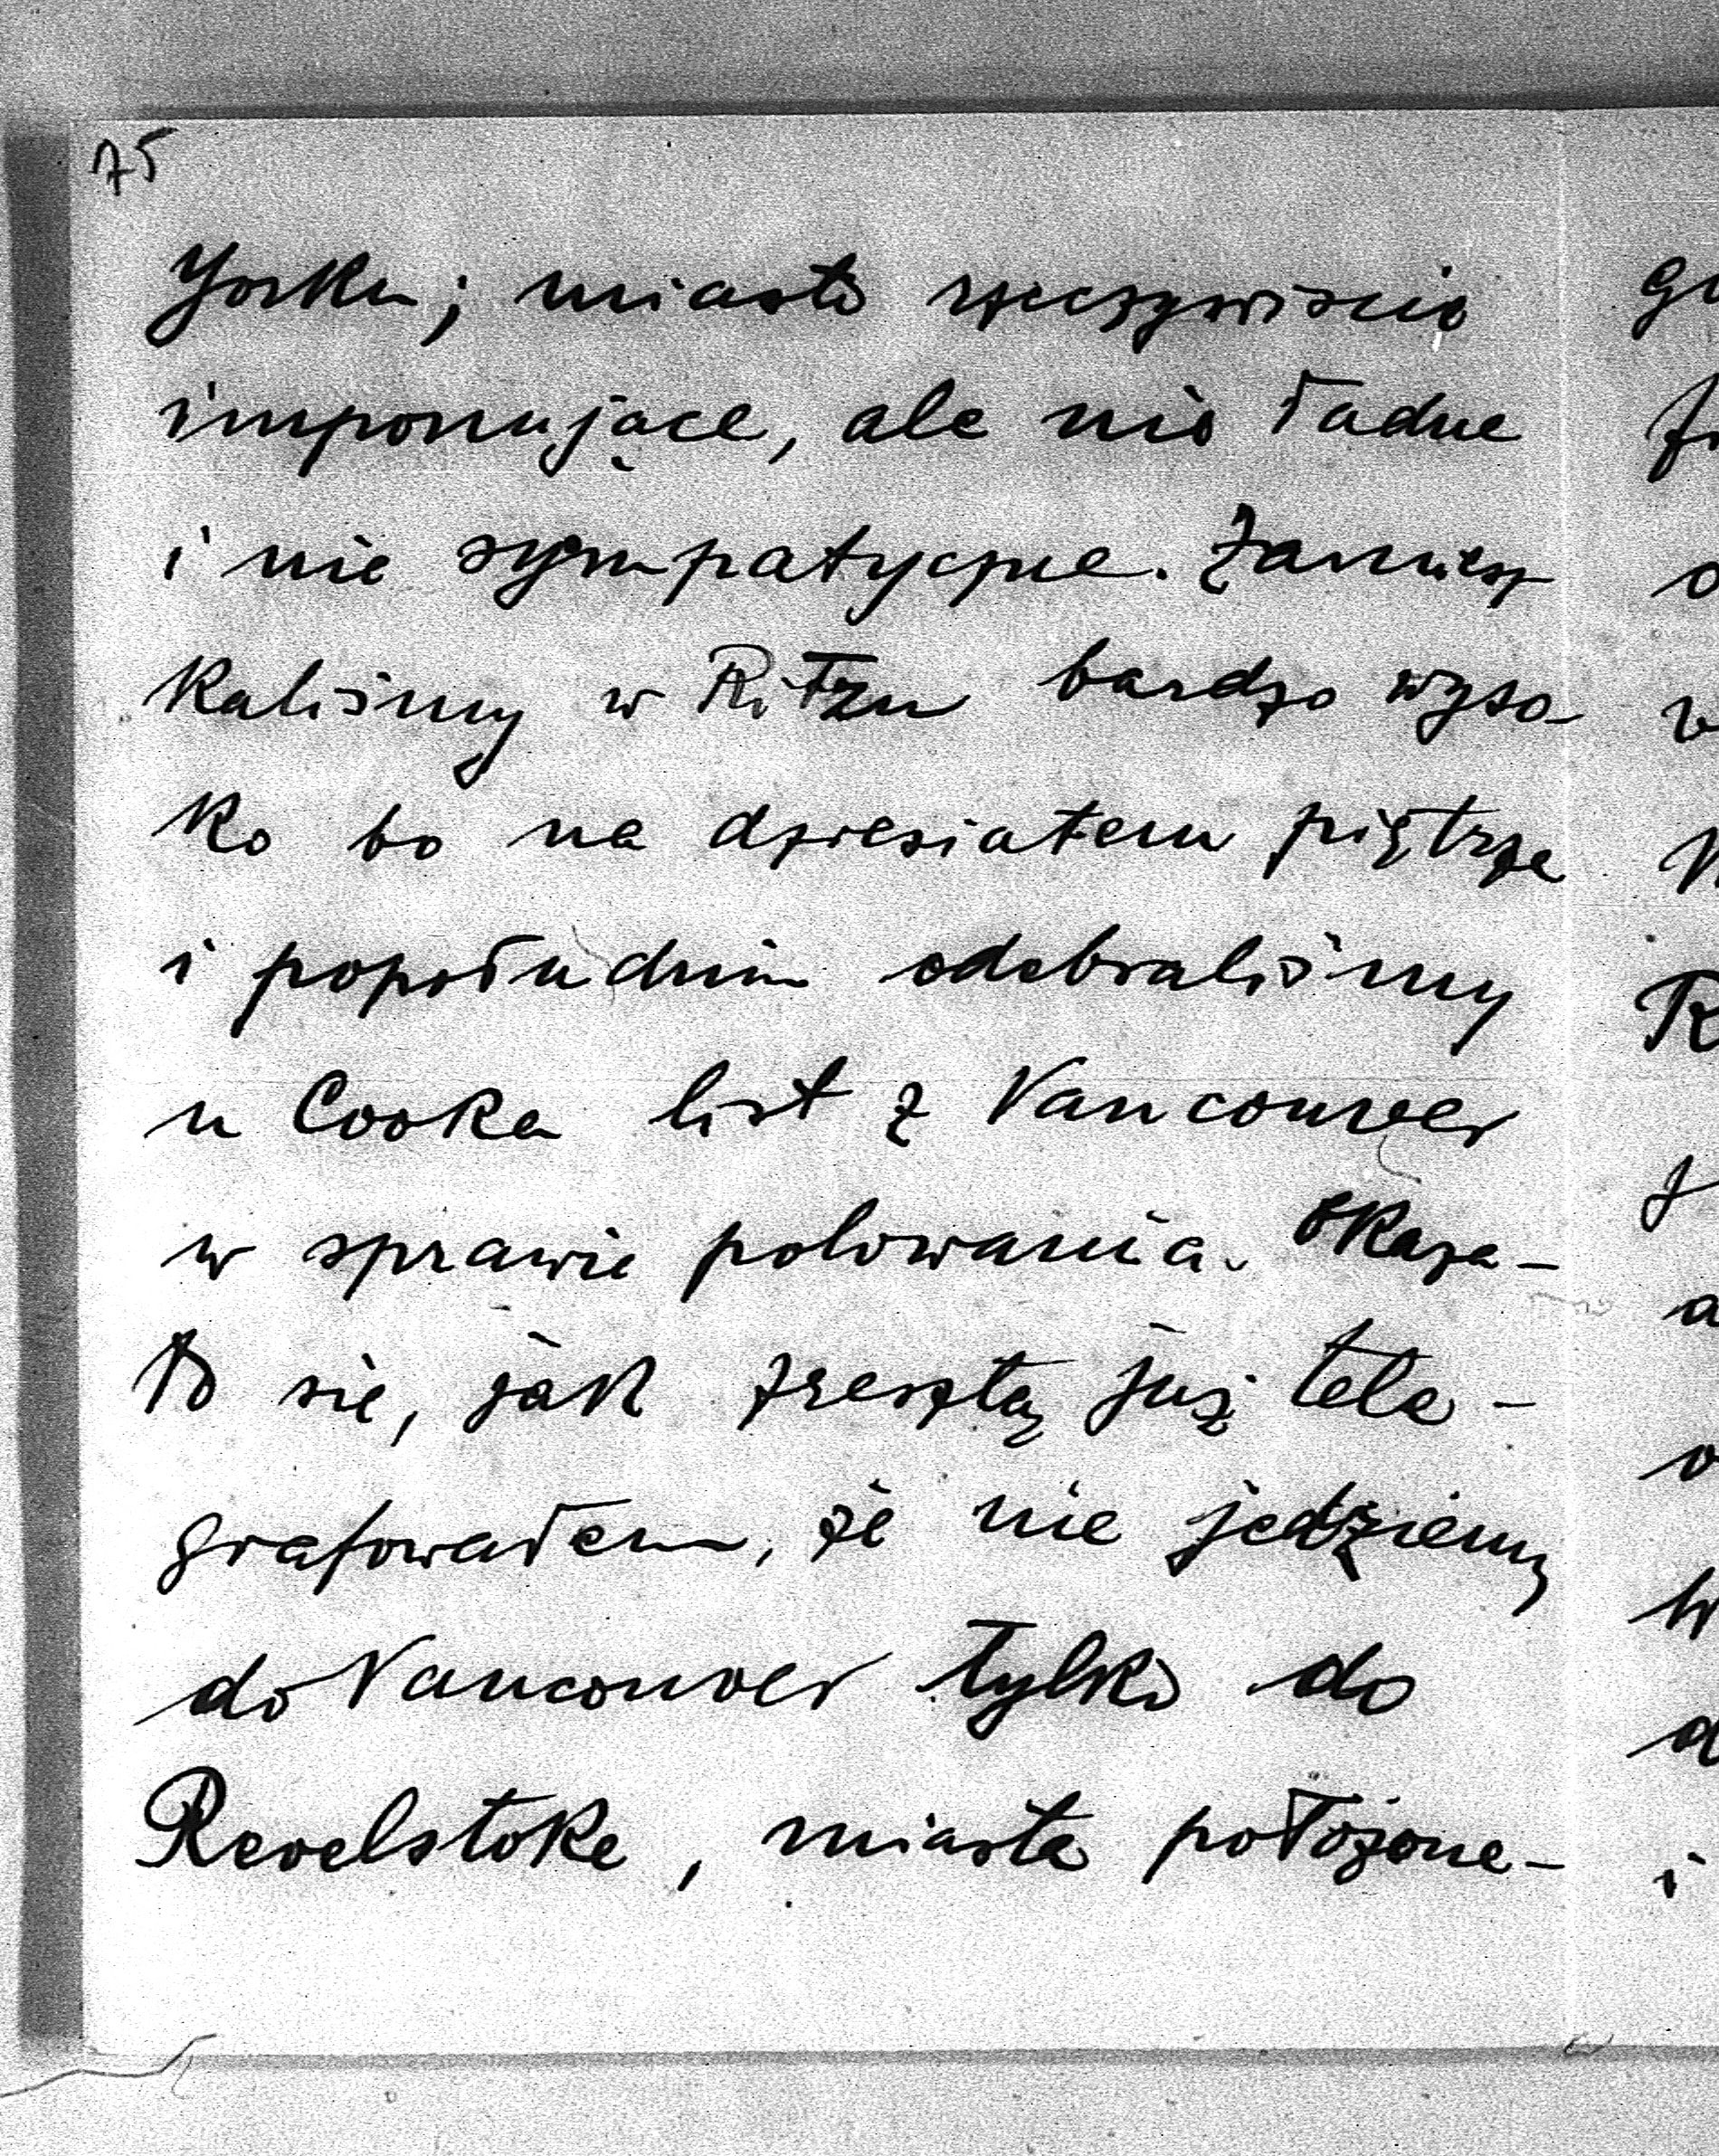 75
Yorku; miasto rzeczywiscie
imponujące, ale nie ładne
i nie sympatyczne. Zamiesz
kaliśmy w Ritzu bardzo wyso-
ko bo na dziesiatem piętrze
i popołudniu odebraliśmy
u Cooka list z Vancouver
w sprawie polowania. Okaza-
ło sie, jak zresztą już tele-
grafowałem, że nie jedziemy
do Vancouver tylko do
Revelstoke, miasta położone-